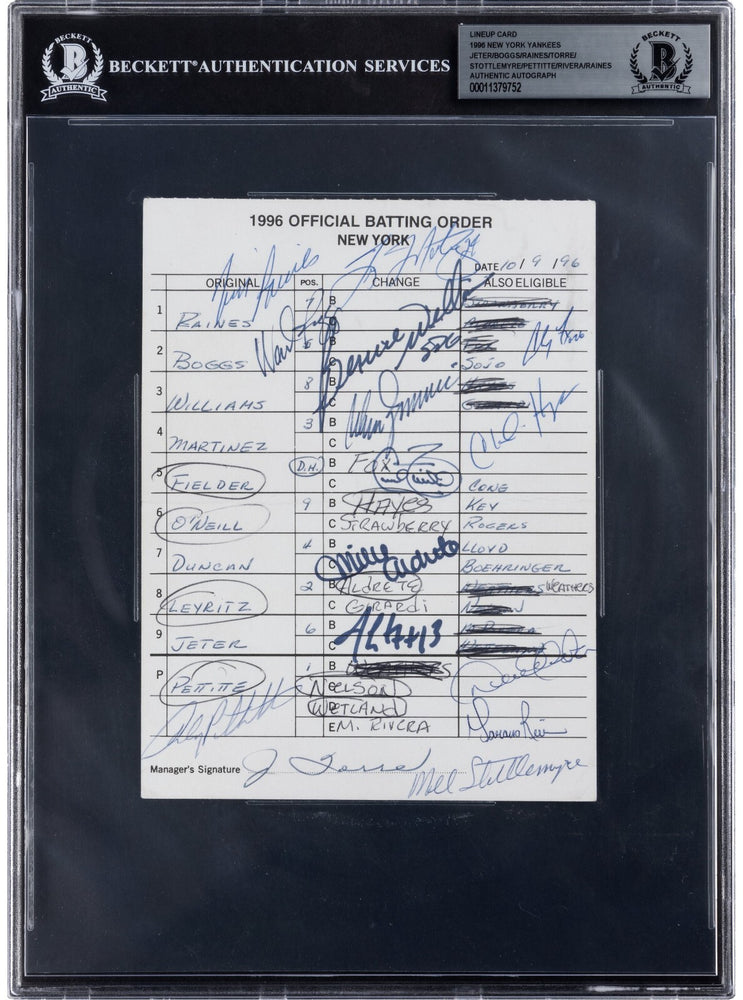 BECKETT
AUTHENTIC
BECKETT® AUTHENTICATION SERVICES
LINEUP CARD
1996 NEW YORK YANKEES
JETER/BOGGS/RAINES/TORRE/
STOTTLEMYRE/PETTITTE/RIVERA/RAINES
AUTHENTIC AUTOGRAPH
00011379752
BECKETT
AUTHENTIC
1996 OFFICIAL BATTING ORDER
NEW YORK
DATE 10/9/96
Tim Raines
ORIGINAL POS. CHANGE ALSO ELIGIBLE
1 RAINES 7 B
C
2 BOGGS 5 B
C SOJO
Bernie Williams
3 WILLIAMS 8 B
C
4 MARTINEZ 3 B
C
5 FIELDER D.H. B FOX
C CONE
6 O'NEILL 9 B HAYES KEY
C STRAWBERRY ROGERS
7 DUNCAN 4 B LLOYD
C BOEHRINGER
8 LEYRITZ 2 B ALDRETE WEATHERS
C GIRARDI
9 JETER 6 B
C
P PETTITTE 1 B
C NELSON
D WETLAND
E M. RIVERA
Derek Jeter
Mariano Rivera
Andy Pettitte
Manager's Signature J Torre
Mel Stottlemyre